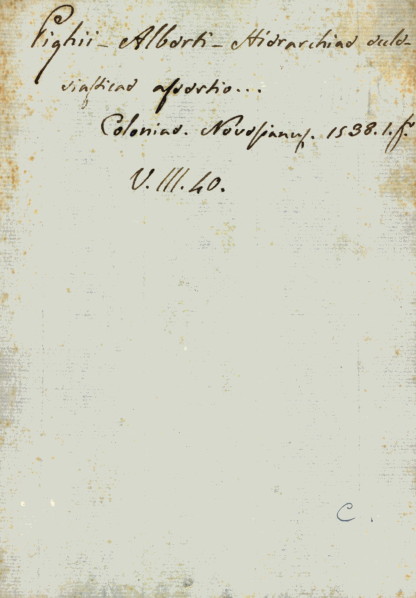 Pighii - Alberti - Hierarchiae eccle-
siasticae assertio...
Coloniae. Novesianus. 1538. 1. fº
V. III. 40.
C.